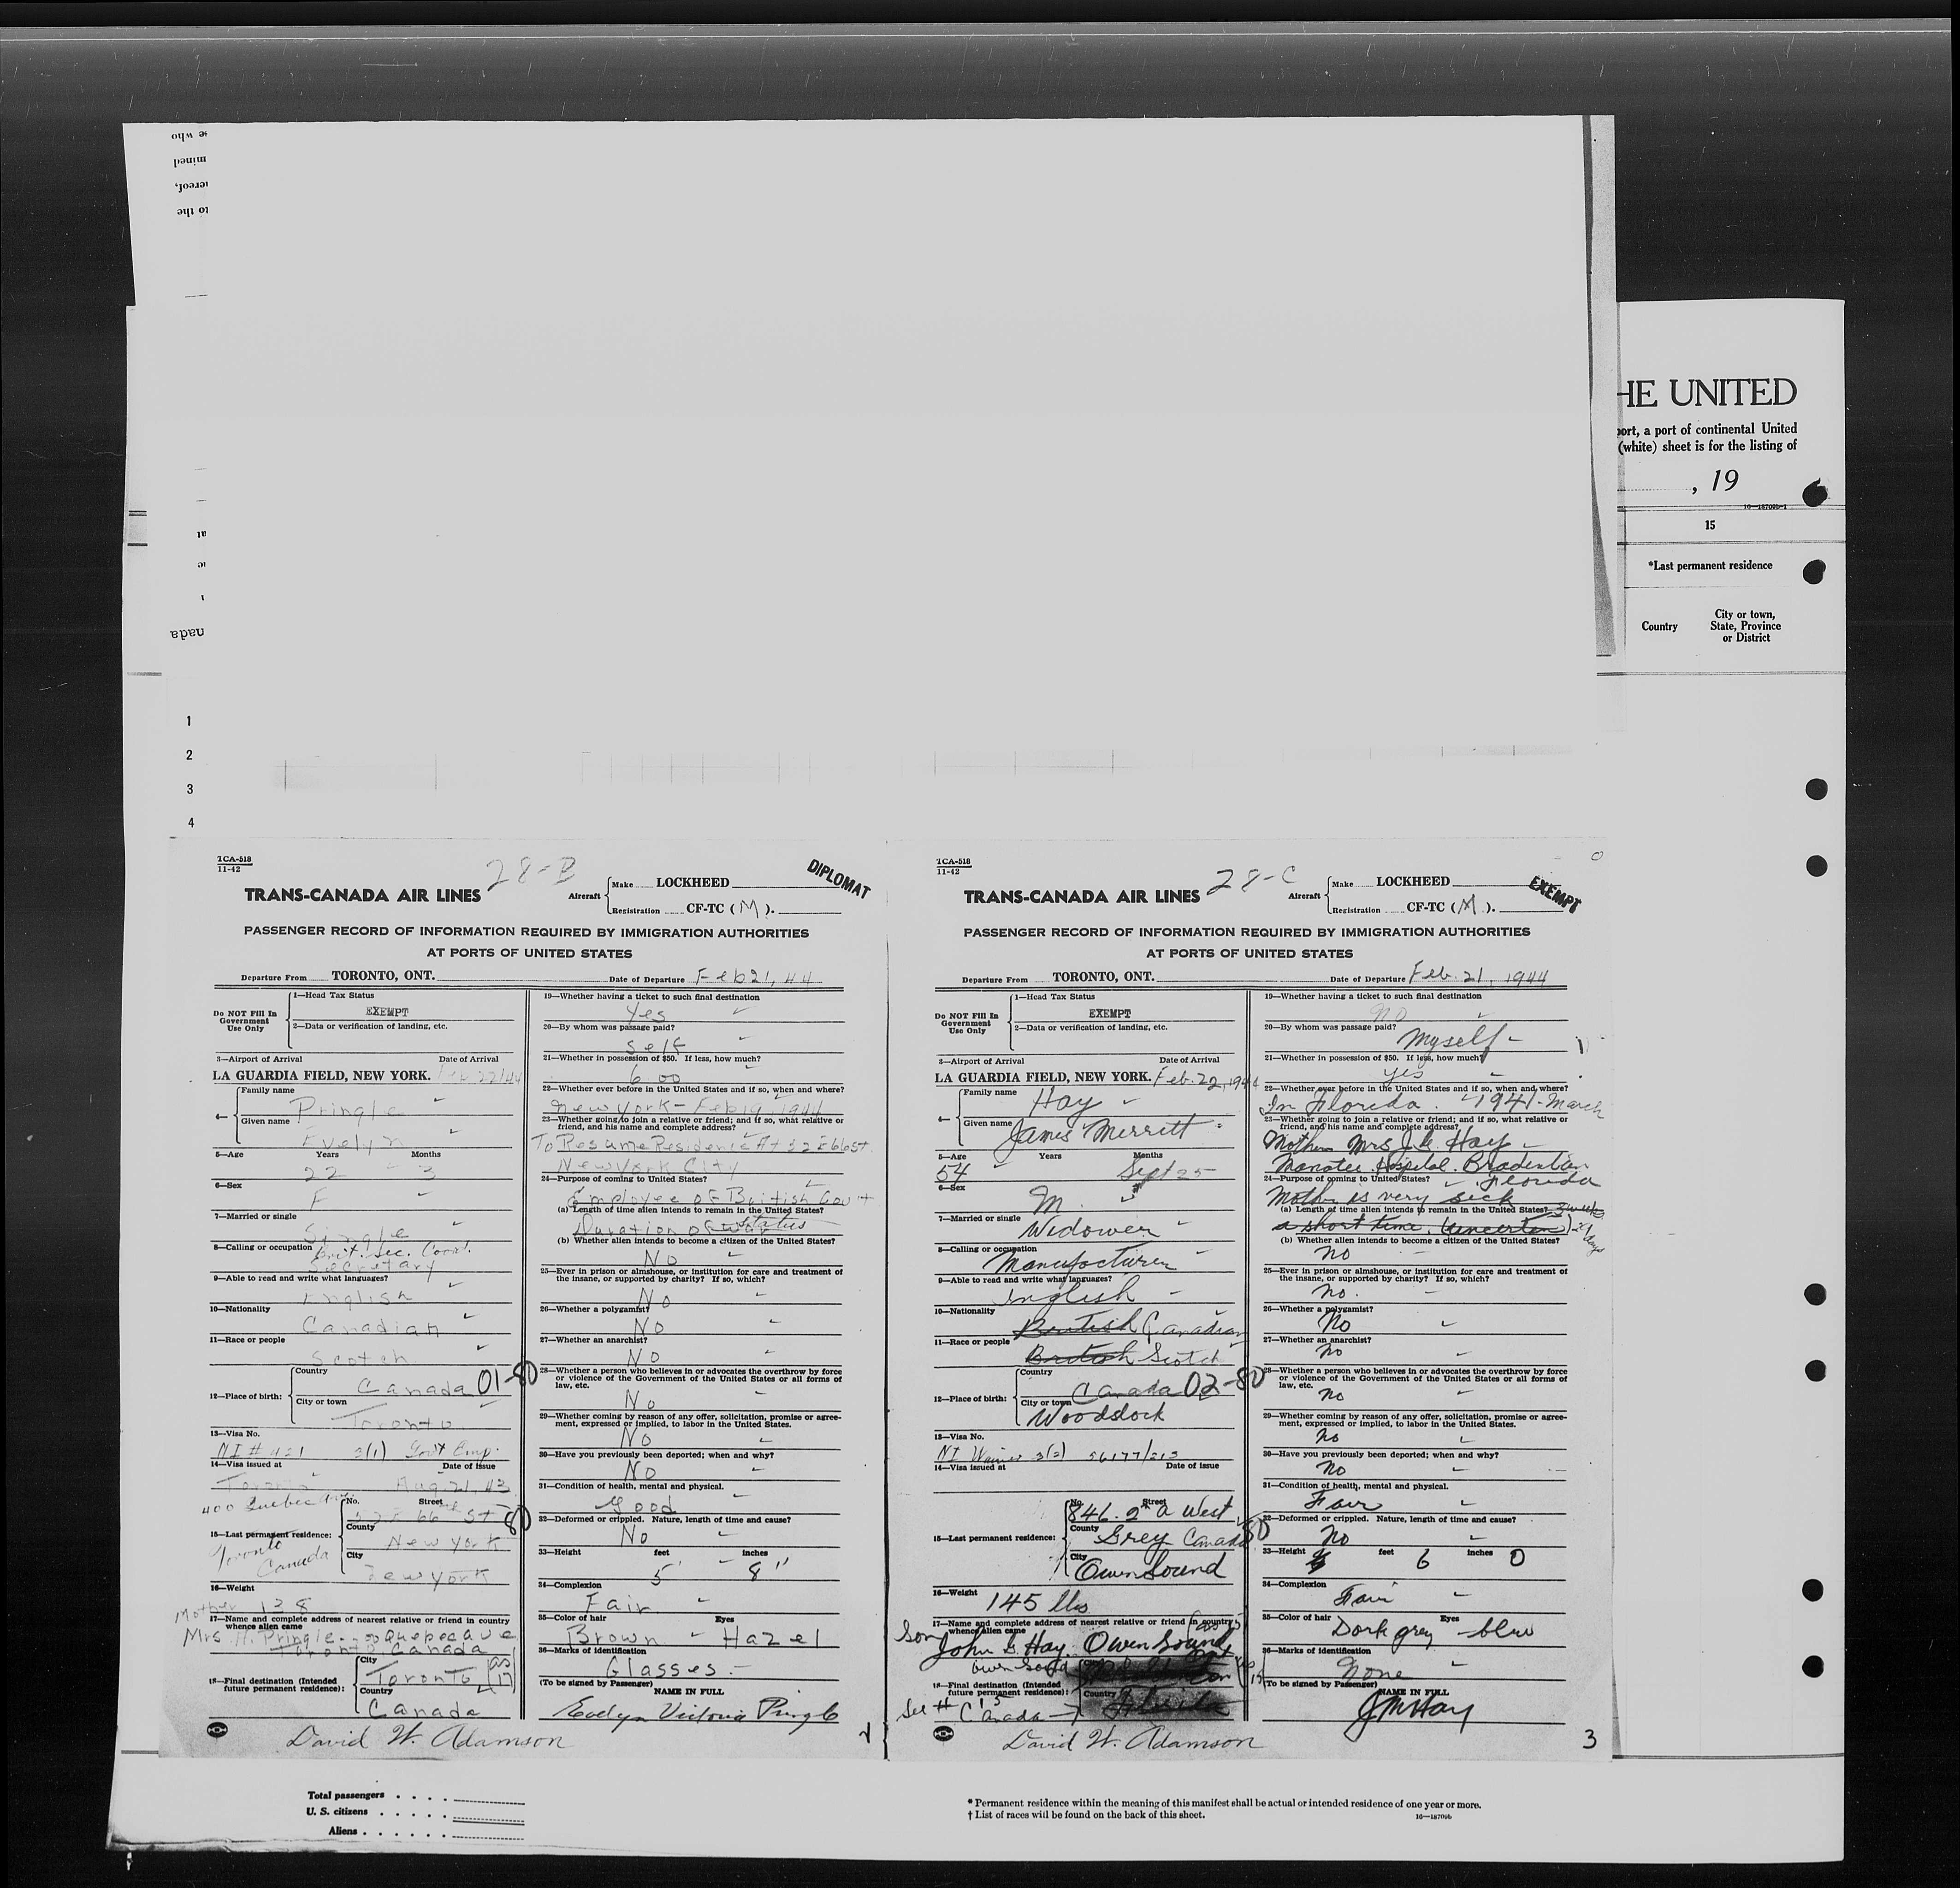 HE UNITED
port, a port of continental United
(white) sheet is for the listing of
, 19
16—18709b-1
15
*Last permanent residence
Country
City or town,
State, Province
or District
se who
mined
hereof,
to the
nada
1
2
3
4
TCA-518
11-42
28-B
DIPLOMAT
TRANS-CANADA AIR LINES
Aircraft
Make LOCKHEED
Registration CF-TC (M).
PASSENGER RECORD OF INFORMATION REQUIRED BY IMMIGRATION AUTHORITIES
AT PORTS OF UNITED STATES
Departure From TORONTO, ONT. Date of Departure Feb 21, 44
Do NOT Fill In
Government
Use Only
1—Head Tax Status
EXEMPT
2—Data or verification of landing, etc.
3—Airport of Arrival Date of Arrival
LA GUARDIA FIELD, NEW YORK. Feb. 22/44
4—
Family name
Pringle
Given name
Evelyn
5—Age Years Months
22 3
6—Sex
F
7—Married or single
Single
8—Calling or occupation Brit. Sec. Coord.
Secretary
9—Able to read and write what languages?
English
10—Nationality
Canadian
11—Race or people
Scotch
12—Place of birth:
Country
Canada 01-80
City or town
Toronto
13—Visa No.
NI # 421 3(1) Govt Emp.
14—Visa issued at Date of Issue
Toronto Aug. 21, 43
400 Quebec Ave
No. Street
32 E 66th St 80
15—Last permanent residence:
County
New York
Toronto
Canada
City
New York
16—Weight
138
Mother
17—Name and complete address of nearest relative or friend in country
whence alien came
Mrs H. Pringle Quebec ave
Toronto Canada
18—Final destination (Intended
future permanent residence):
City
Toronto
as
17
Country
Canada
David W. Adamson
19—Whether having a ticket to such final destination
Yes
20—By whom was passage paid?
Self
21—Whether in possession of $50. If less, how much?
6.00
22—Whether ever before in the United States and if so, when and where?
New York - Feb 19, 1944
23—Whether going to join a relative or friend; and if so, what relative or
friend, and his name and complete address?
To Resume Residence At 32 E 66 St.
New York City
24—Purpose of coming to United States?
Employee of British Gov't
(a) Length of time alien intends to remain in the United States?
Duration of status
(b) Whether alien intends to become a citizen of the United States?
No
25—Ever in prison or almshouse, or institution for care and treatment of
the insane, or supported by charity? If so, which?
No
26—Whether a polygamist?
No
27—Whether an anarchist?
No
28—Whether a person who believes in or advocates the overthrow by force
or violence of the Government of the United States or all forms of
law, etc.
No
29—Whether coming by reason of any offer, solicitation, promise or agree-
ment, expressed or implied, to labor in the United States.
No
30—Have you previously been deported; when and why?
No
31—Condition of health, mental and physical.
Good
32—Deformed or crippled. Nature, length of time and cause?
No
33—Height feet inches
5' 8"
34—Complexion
Fair
35—Color of hair Eyes
Brown - Hazel
36—Marks of identification
Glasses
(To be signed by Passenger)
NAME IN FULL
Evelyn Victoria Pringle
2
TCA-518
11-42
28-C
EXEMPT
TRANS-CANADA AIR LINES
Aircraft
Make LOCKHEED
Registration CF-TC (M).
PASSENGER RECORD OF INFORMATION REQUIRED BY IMMIGRATION AUTHORITIES
AT PORTS OF UNITED STATES
Departure From TORONTO, ONT. Date of Departure Feb. 21, 1944
Do NOT Fill In
Government
Use Only
1—Head Tax Status
EXEMPT
2—Data or verification of landing, etc.
3—Airport of Arrival Date of Arrival
LA GUARDIA FIELD, NEW YORK. Feb. 22, 1944
4—
Family name
Hay
Given name
James Merritt
5—Age Years Months
54 Sept 25
6—Sex
M.
7—Married or single
Widower
8—Calling or occupation
Manufacturer
9—Able to read and write what languages?
English
10—Nationality
British Canadian
11—Race or people
British Scotch
12—Place of birth:
Country
Canada 02-80
City or town
Woodstock
13—Visa No.
NI Waiver 3(2) 56177/213
14—Visa issued at Date of Issue
15—Last permanent residence:
No. Street
846. 2nd A West
County
Grey Canada 80
City
Owen Sound
16—Weight
145 lbs
17—Name and complete address of nearest relative or friend in country
whence alien came
Son
John G Hay. Owen Sound
Owen Sound
18—Final destination (Intended
future permanent residence):
Country
See # 15
Canada
David W. Adamson
19—Whether having a ticket to such final destination
No
20—By whom was passage paid?
Myself
21—Whether in possession of $50. If less, how much?
yes
22—Whether ever before in the United States and if so, when and where?
In Florida. 1941 - March
23—Whether going to join a relative or friend; and if so, what relative or
friend, and his name and complete address?
Mother Mrs J. G. Hay
Manatee Hospital. Bradenton
Florida
24—Purpose of coming to United States?
Mother is very sick
(a) Length of time alien intends to remain in the United States? 3 weeks
a short time. (uncertain) 21 days
(b) Whether alien intends to become a citizen of the United States?
no
25—Ever in prison or almshouse, or institution for care and treatment of
the insane, or supported by charity? If so, which?
no.
26—Whether a polygamist?
No
27—Whether an anarchist?
No
28—Whether a person who believes in or advocates the overthrow by force
or violence of the Government of the United States or all forms of
law, etc.
no
29—Whether coming by reason of any offer, solicitation, promise or agree-
ment, expressed or implied, to labor in the United States.
no
30—Have you previously been deported; when and why?
no
31—Condition of health, mental and physical.
Fair
32—Deformed or crippled. Nature, length of time and cause?
No
33—Height feet 6 inches 0
34—Complexion
Fair
35—Color of hair Eyes
Dark grey - blue
36—Marks of identification
None
(To be signed by Passenger)
NAME IN FULL
J M Hay
3
Total passengers
U. S. citizens
Aliens
* Permanent residence within the meaning of this manifest shall be actual or intended residence of one year or more.
† List of races will be found on the back of this sheet.
16—18709b